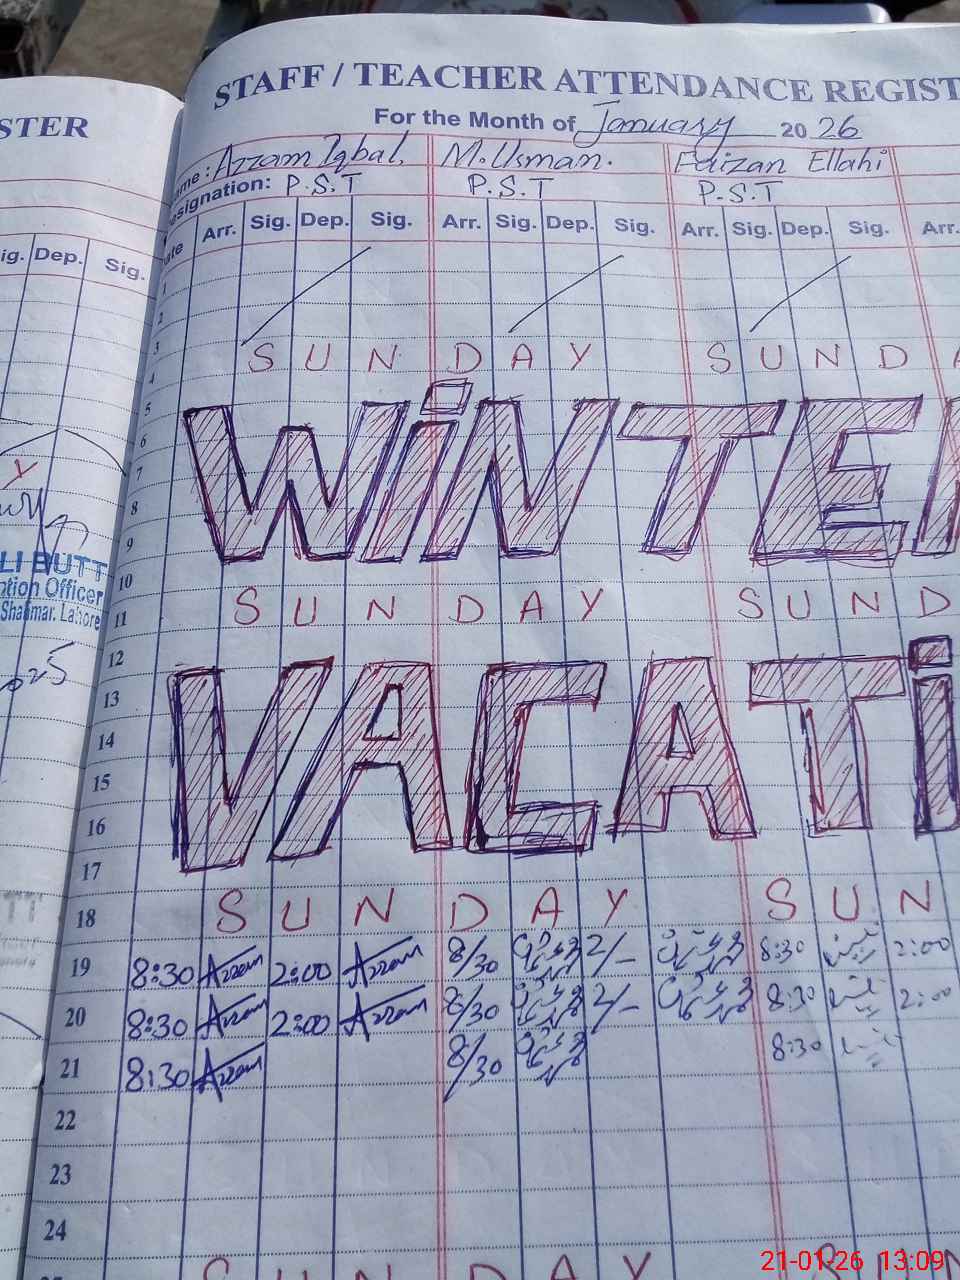 STER
STAFF / TEACHER ATTENDANCE REGIST
For the Month of January 20 26
ame : Azzam Iqbal. M. Usman. Faizan Ellahi
esignation: P.S.T P.S.T P.S.T
ate Arr. Sig. Dep. Sig. Arr. Sig. Dep. Sig. Arr. Sig. Dep. Sig. Arr.
ig. Dep. Sig.
1
2
3
S U N D A Y S U N D A
4
5
WiNTE
6
7
8
9
10
S U N D A Y S U N D
11
12
VACATi
13
14
15
16
17
S U N D A Y S U N
18
19 8:30 Azzam 2:00 Azzam 8/30 2/- 8:30 2:00
20 8:30 Azzam 2:00 Azzam 8/30 2/- 8:30 2:00
21 8:30 Azzam 8/30 8:30
22
23
24
S U N D A Y
LI BUTT
ntion Officer
Shalimar. Lahore
21-01-26 13:09